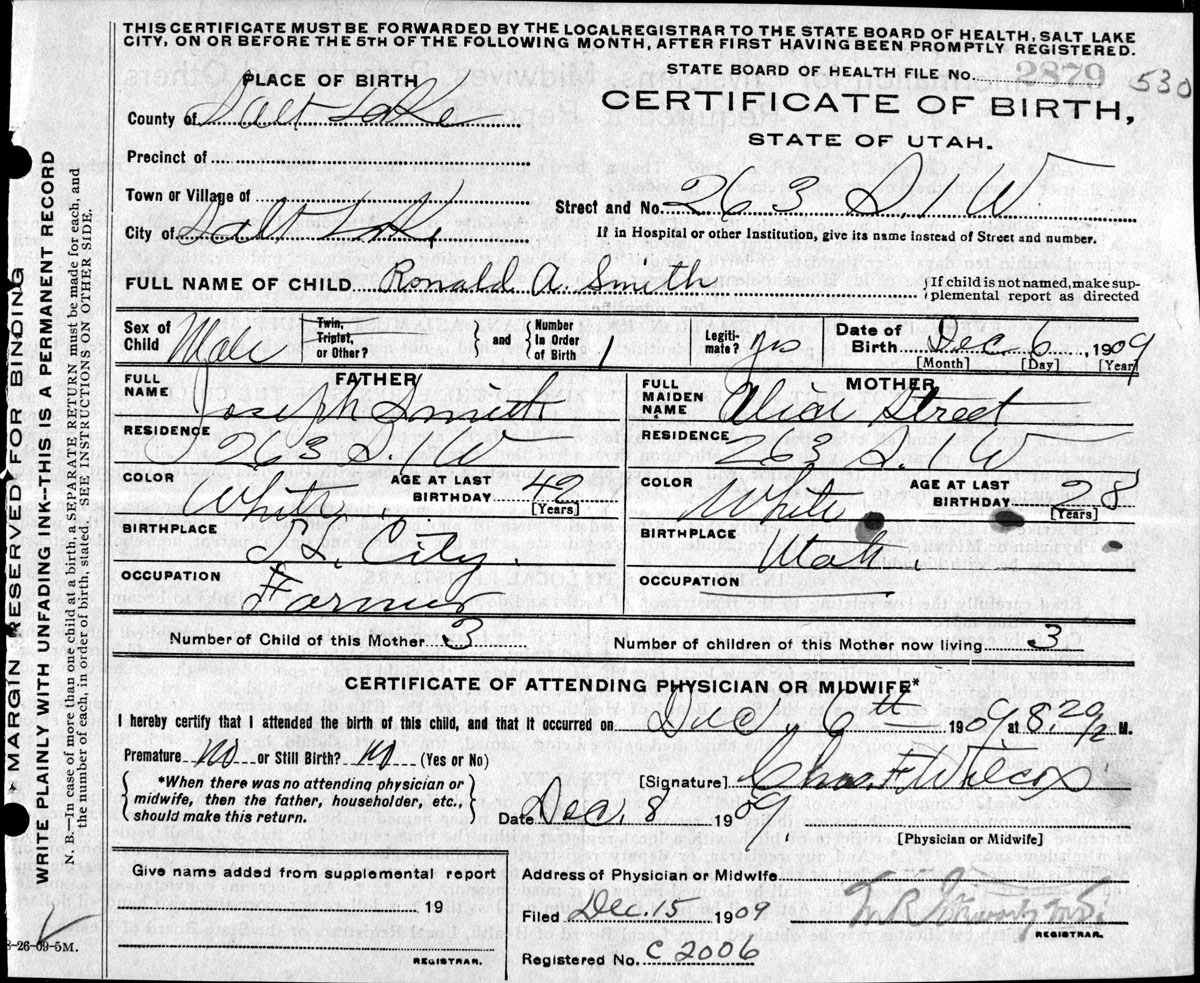 THIS CERTIFICATE MUST BE FORWARDED BY THE LOCALREGISTRAR TO THE STATE BOARD OF HEALTH, SALT LAKE
CITY, ON OR BEFORE THE 5TH OF THE FOLLOWING MONTH, AFTER FIRST HAVING BEEN PROMPTLY REGISTERED.
PLACE OF BIRTH
STATE BOARD OF HEALTH FILE No. 2879 530
County of Salt Lake
CERTIFICATE OF BIRTH,
STATE OF UTAH.
Precinct of
Town or Village of
Street and No. 263 S. 1 W
City of Salt Lake
If in Hospital or other Institution, give its name instead of Street and number.
FULL NAME OF CHILD Ronald A. Smith
If child is not named, make sup-
plemental report as directed
Sex of Child Male
Twin, Triplet, or Other?
and
Number In Order of Birth 1
Legiti-mate? Yes
Date of Birth Dec. 6, 1909
[Month] [Day] [Year]
FATHER
FULL NAME Joseph Smith
MOTHER
FULL MAIDEN NAME Alice Street
RESIDENCE 263 S. 1 W
RESIDENCE 263 S. 1 W
COLOR White
AGE AT LAST BIRTHDAY 42 [Years]
COLOR White
AGE AT LAST BIRTHDAY 28 [Years]
BIRTHPLACE City
BIRTHPLACE Utah.
OCCUPATION Farmer
OCCUPATION
Number of Child of this Mother 3
Number of children of this Mother now living 3
CERTIFICATE OF ATTENDING PHYSICIAN OR MIDWIFE*
I hereby certify that I attended the birth of this child, and that it occurred on Dec. 6th 1909 at 8:20 M.
Premature No or Still Birth? No (Yes or No)
*When there was no attending physician or
midwife, then the father, householder, etc.,
should make this return.
[Signature] Chas. F. Wilcox
Date Dec. 8 1909,
[Physician or Midwife]
Give name added from supplemental report
19
REGISTRAR.
Address of Physician or Midwife
Filed Dec. 15 1909
REGISTRAR.
Registered No. C 2006
MARGIN RESERVED FOR BINDING
WRITE PLAINLY WITH UNFADING INK--THIS IS A PERMANENT RECORD
N. B.—In case of more than one child at a birth, a SEPARATE RETURN must be made for each, and
the number of each, in order of birth, stated. SEE INSTRUCTIONS ON OTHER SIDE.
8-26-09-5M.